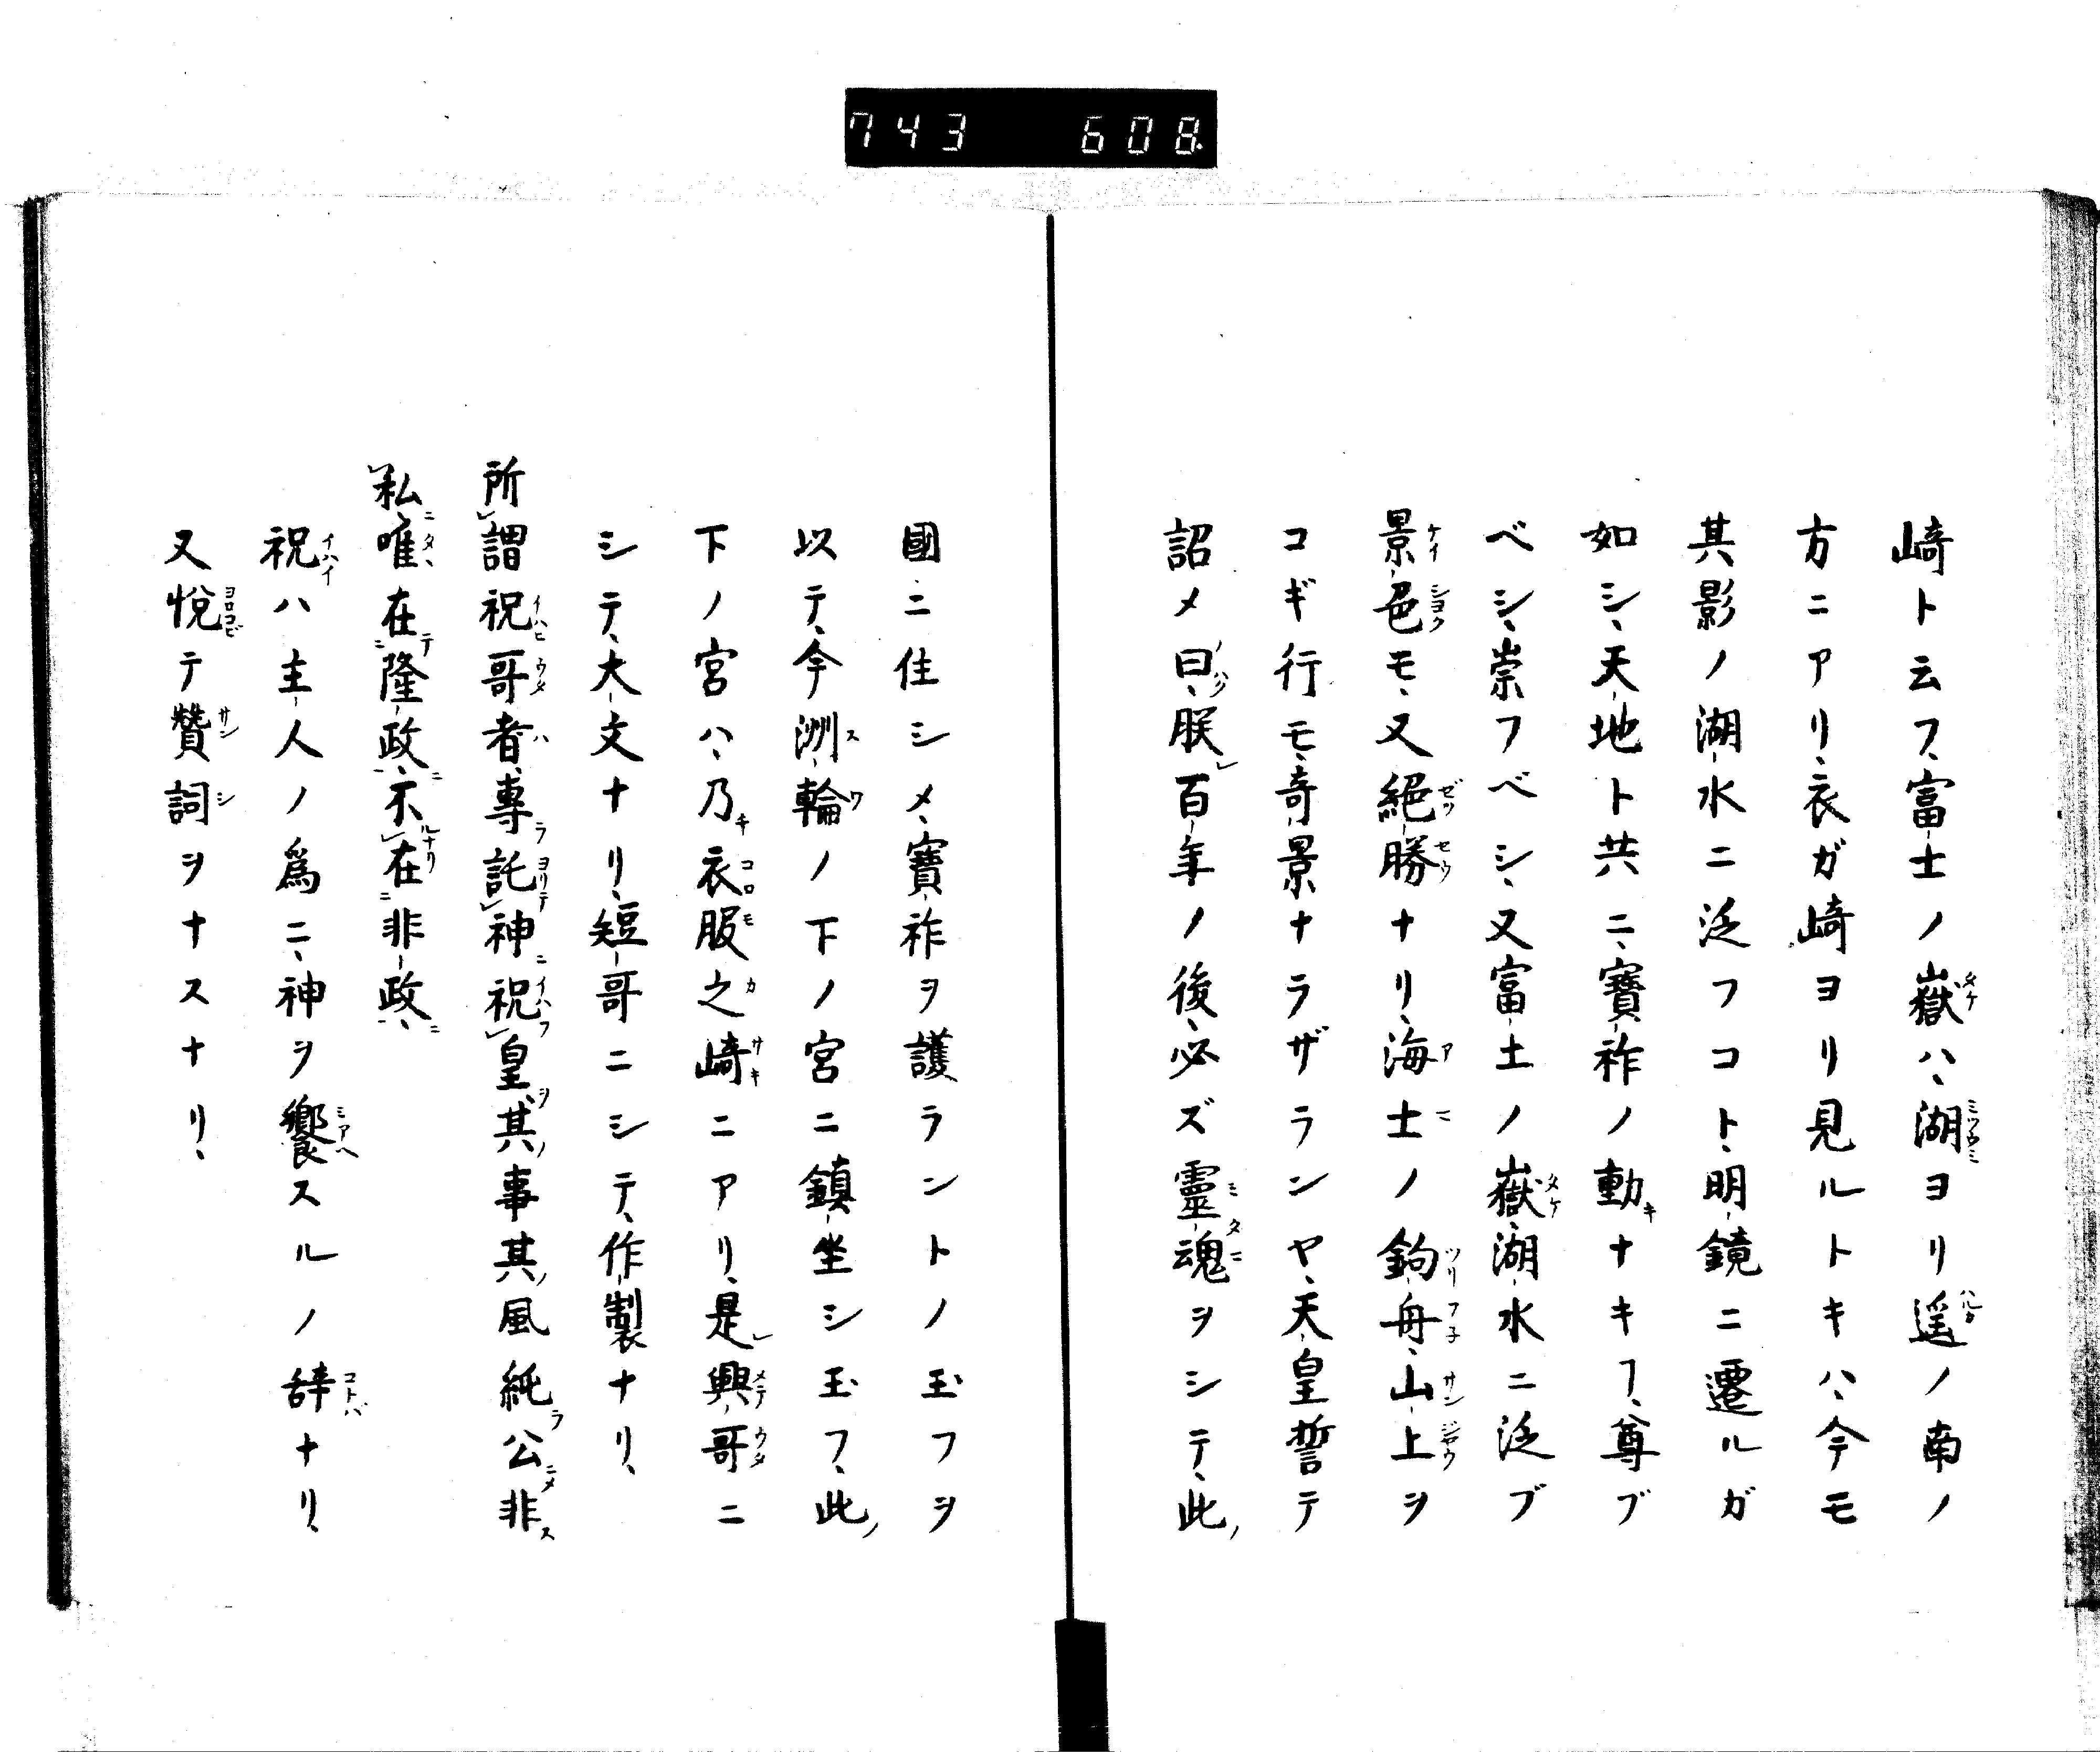 743 608
崎ト云フ、富士ノ嶽ハ、湖ヨリ遥ノ南ノ
方ニアリ、衣ガ崎ヨリ見ルトキハ、今モ
其影ノ湖水ニ泛フコト、明鏡ニ遷ルガ
如シ、天地ト共ニ、寶祚ノ動ナキフ、尊ブ
ベシ、崇フベシ、又富士ノ嶽、湖水ニ泛ブ
景色モ、又絕勝ナリ、海士ノ釣舟、山上ヲ
コギ行モ、奇景ナラザランヤ、天皇誓テ
詔メ曰、朕百年ノ後、必ズ靈魂ヲシテ、此ノ
國ニ住シメ、寶祚ヲ護ラントノ玉フヲ
以テ、今洲輪ノ下ノ宮ニ鎮坐シ玉フ、此ノ
下ノ宮ハ、乃衣服之崎ニアリ、是興哥ニ
シテ、大文ナリ、短哥ニシテ、作製ナリ、
所謂祝哥者、專託神祝皇、其事其風純公非
私、唯在隆政、不在非政、
祝ハ主人ノ爲ニ、神ヲ饗スルノ辞ナリ、
又悅テ贊詞ヲナスナリ、